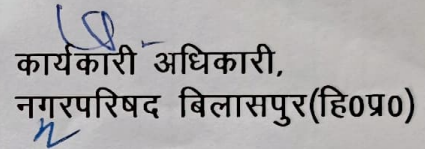 कार्यकारी अधिकारी,
नगरपरिषद बिलासपुर(हि0प्र0)